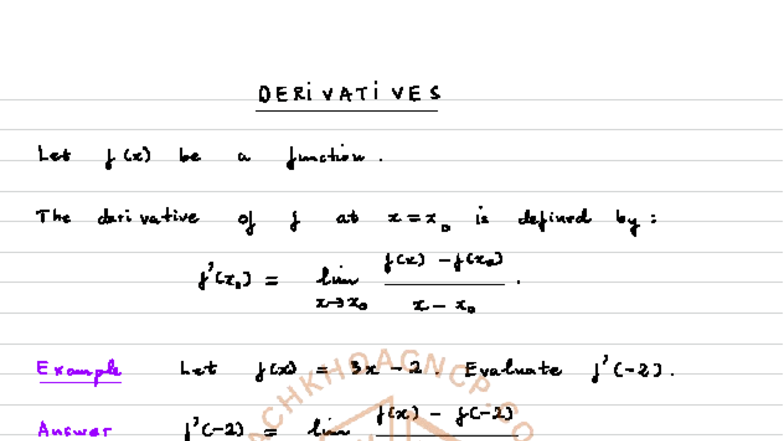 DERiVATiVES
Let f(x) be a function.
The derivative of f at x = x₀ is defined by:
f'(x₀) = lim x→x₀ f(x) - f(x₀) / x - x₀ .
Example Let f(x) = 3x - 2. Evaluate f'(-2).
Answer f'(-2) = lim f(x) - f(-2)
ACHKHOACNCP.CO